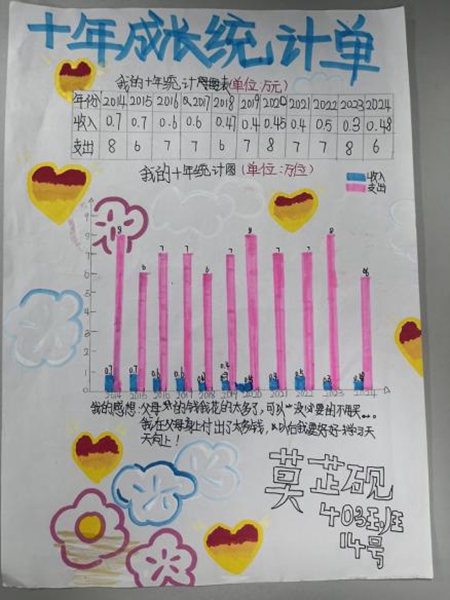 十年成长统计单
我的十年统计 表(单位:万元)
年份 2014 2015 2016 2017 2018 2019 2020 2021 2022 2023 2024
收入 0.7 0.7 0.6 0.6 0.47 0.4 0.45 0.4 0.5 0.3 0.48
支出 8 6 7 7 6 7 8 7 7 8 6
我的十年统计图(单位:万位)
收入
支出
8 6 7 7 6 7 8 7 7 8
0.7 0.7 0.6 0.6
2014 2015 2016 2017 2018 2019 2020 2021 2022 2023 2024
我的感想:父母 的钱我花的太多了,可以 没必要的不用买……
我在父母身上付出了太多钱,以后我要好好学习天
天向上!
莫芷砚
403班
14号